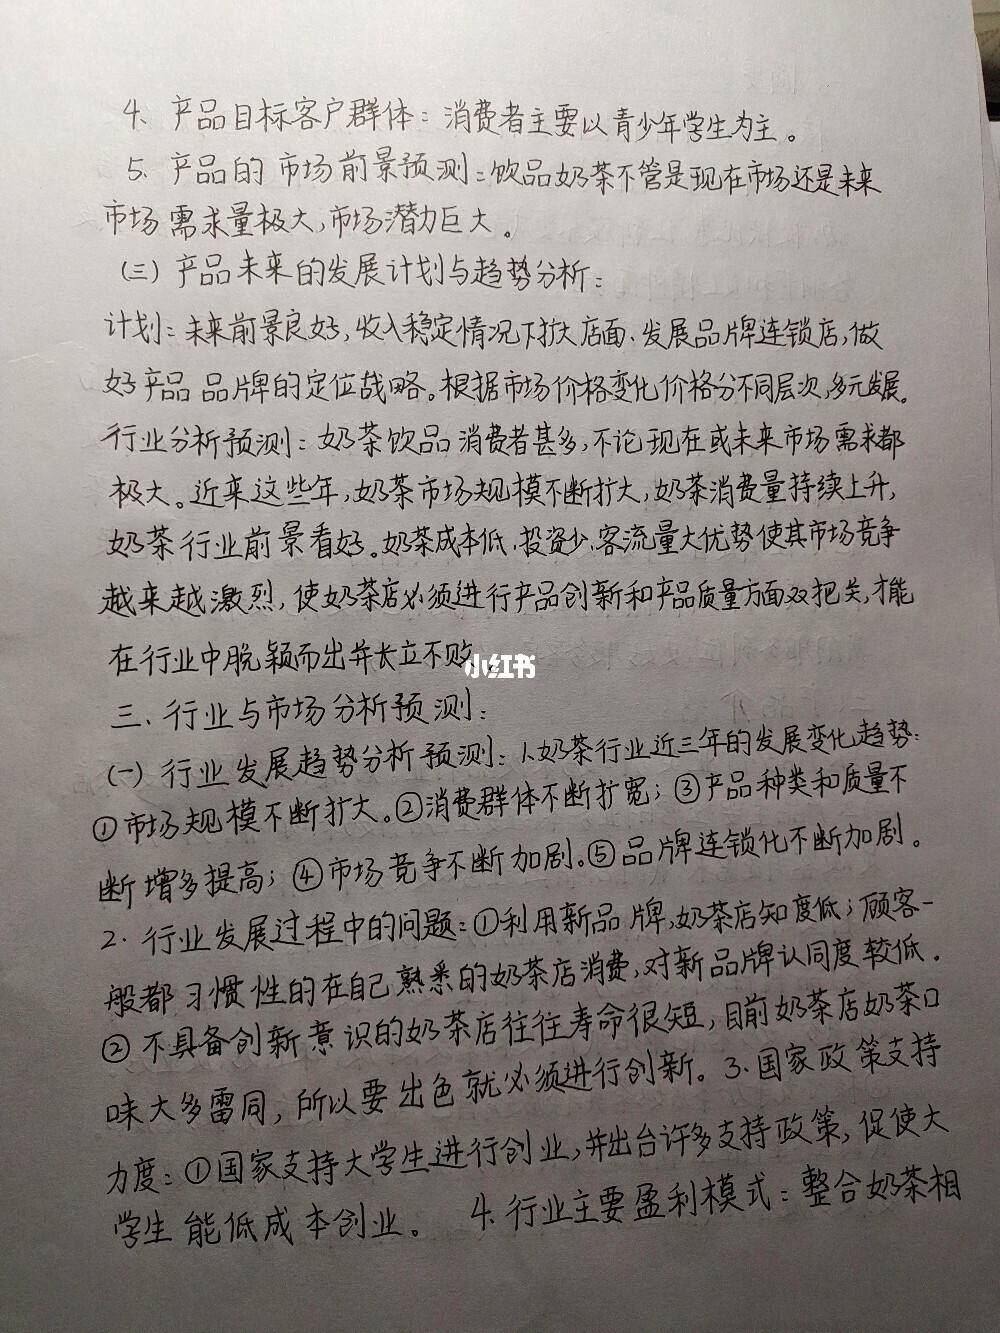 4、产品目标客户群体：消费者主要以青少年学生为主。
5、产品的市场前景预测：饮品奶茶不管是现在市场还是未来
市场需求量极大，市场潜力巨大。
(三）产品未来的发展计划与趋势分析：
计划：未来前景良好，收入稳定情况下扩大店面、发展品牌连锁店，做
好产品品牌的定位战略。根据市场价格变化价格分不同层次，多元发展。
行业分析预测：奶茶饮品消费者甚多，不论现在或未来市场需求都
极大。近来这些年，奶茶市场规模不断扩大，奶茶消费量持续上升，
奶茶行业前景看好。奶茶成本低、投资少、客流量大优势使其市场竞争
越来越激烈，使奶茶店必须进行产品创新和产品质量方面双把关，才能
在行业中脱颖而出并长立不败。
小红书
三、行业与市场分析预测：
(一）行业发展趋势分析预测：从奶茶行业近三年的发展变化趋势：
①市场规模不断扩大。②消费群体不断扩宽；③产品种类和质量不
断增多提高；④市场竞争不断加剧。⑤品牌连锁化不断加剧。
2．行业发展过程中的问题：①利用新品牌，奶茶店知度低；顾客一
般都习惯性的在自己熟悉的奶茶店消费，对新品牌认同度较低．
②不具备创新意识的奶茶店往往寿命很短，目前奶茶店奶茶口
味大多雷同，所以要出色就必须进行创新。3、国家政策支持
力度：①国家支持大学生进行创业，并出台许多支持政策，促使大
学生能低成本创业。 4、行业主要盈利模式：整合奶茶相